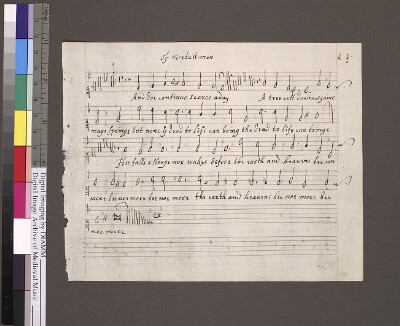 of mortall man
And doe continue scarce a day A tree cutt downe againe
maye springe but none y^e dead to life can bring the dead to life can bringe
He falls a sleepe nor wakes before the earth and heavens bee noe
more bee noe more bee noe more the earth and heavens bee noe more bee
noe more
Digital Imaging by DIAMM
Digital Image Archive of Medieval Music